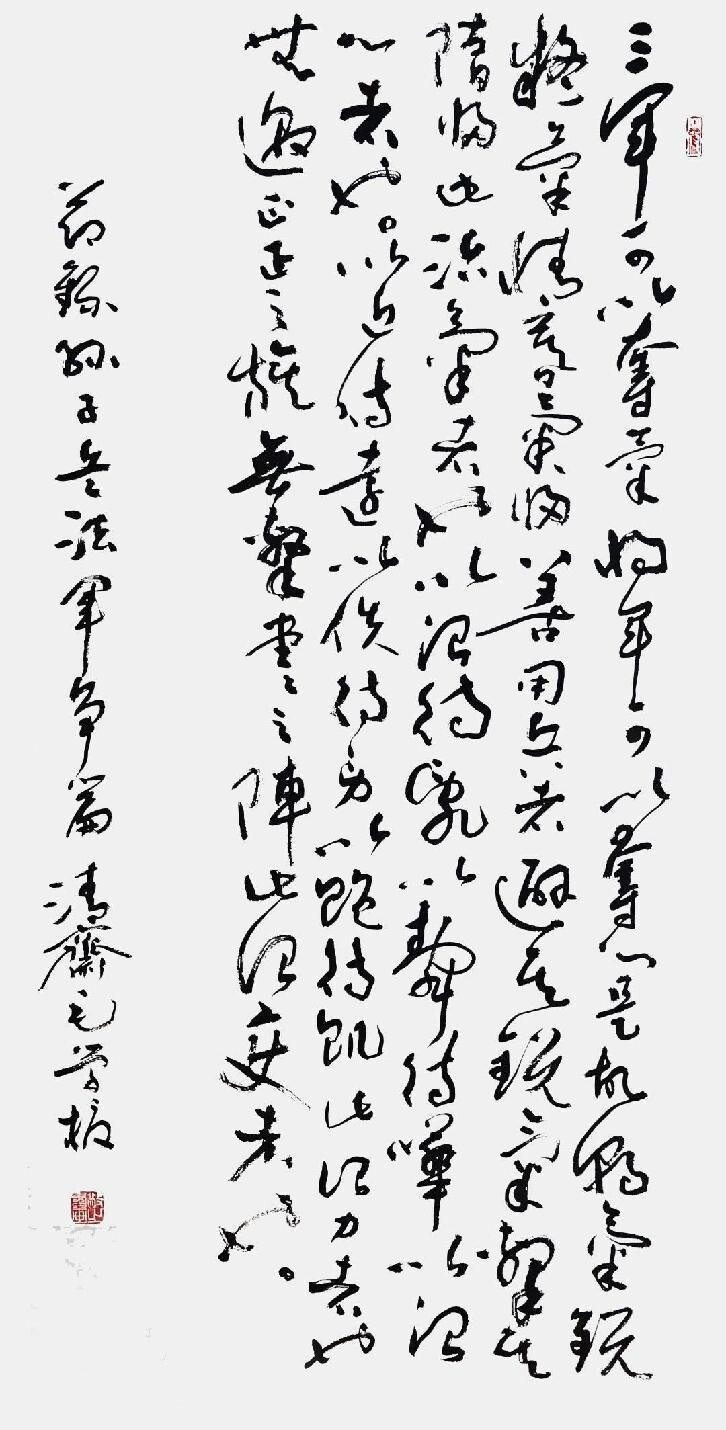 三軍可以奪氣將軍可以奪心是故朝氣銳
氣惰暮氣歸善用兵者避其銳氣擊其
隋歸此治氣者也以治待亂以靜待嘩以治
心者也。以近待遠以佚待勞以飽待飢此治力者也
无邀正正之旗無擊堂々之陣此治變者也。
節錄孫子兵法軍爭篇 清齋毛学